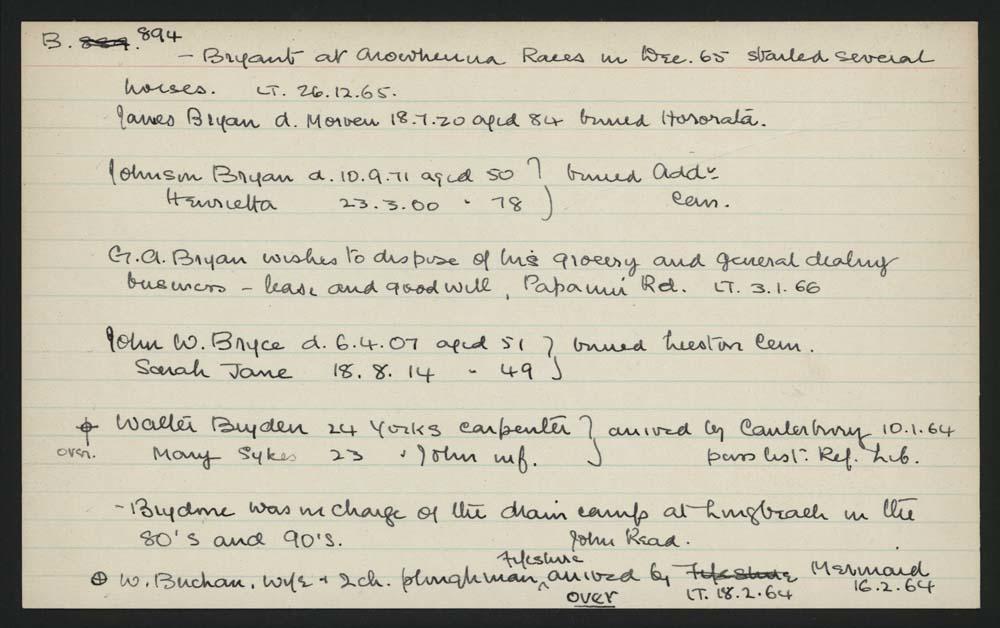 B. 894
- Bryant at Arowhenua Races in Dec. 65 started several
horses. LT. 26.12.65.
James Bryan d. Morven 18.7.20 aged 84 buried Hororata.
Johnson Bryan d. 10.9.71 aged 50 } buried Addn
Henrietta 23.3.00 " 78 } Cem.
G.A. Bryan wishes to dispose of his grocery and general dealing
business - lease and goodwill, Papanui Rd. LT. 3.1.66
John W. Bryce d. 6.4.07 aged 51 } buried Leeston Cem.
Sarah Jane 18.8.14 " 49 }
⌽ Walter Bryden 24 Yorks carpenter } arrived by Canterbury 10.1.64
over. Mary Sykes 23 . John inf. } pass list. Ref. Lib.
- Brydone was in charge of the drain camp at Longbeach in the
80's and 90's. John Read.
⌽ W. Buchan, wife + 2 ch. ploughman, Fifeshire arrived by Fifeshire Mermaid
over LT. 18.2.64 16.2.64